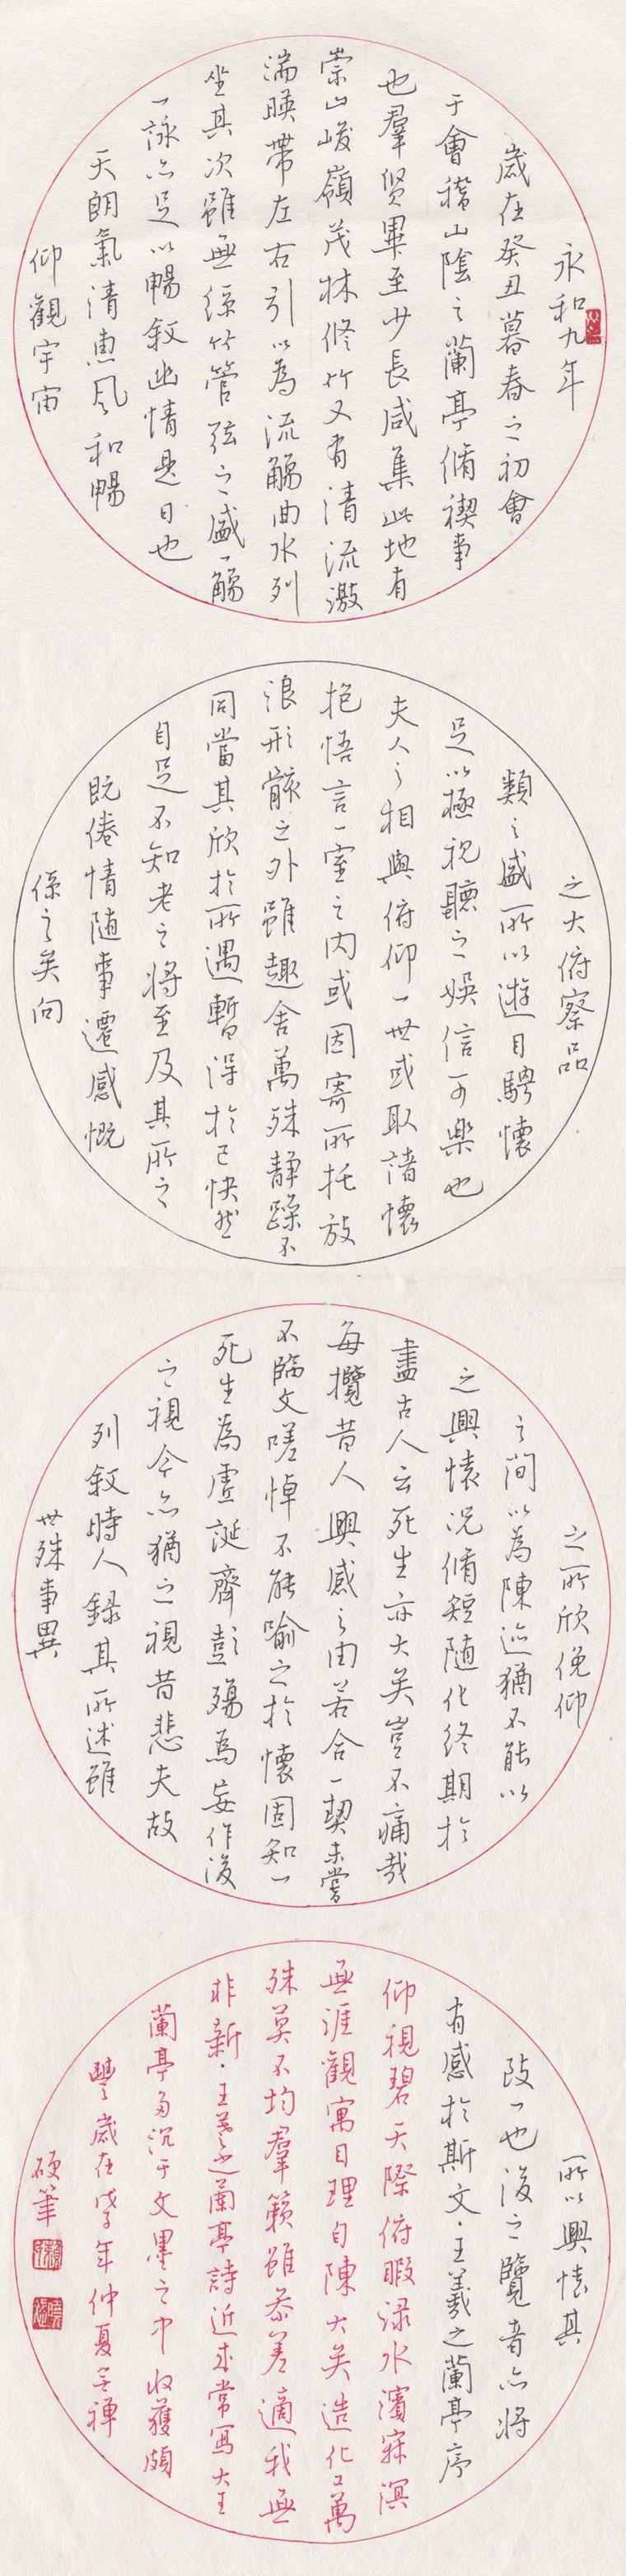 永和九年
歲在癸丑暮春之初會
于會稽山陰之蘭亭脩稧事
也羣賢畢至少長咸集此地有
崇山峻嶺茂林脩竹又有清流激
湍暎帶左右引以為流觴曲水列
坐其次雖無絲竹管弦之盛一觴
一詠亦足以暢敘幽情是日也
天朗氣清惠風和暢
仰觀宇宙
之大俯察品
類之盛所以遊目騁懷
足以極視聽之娛信可樂也
夫人之相與俯仰一世或取諸懷
抱悟言一室之內或因寄所托放
浪形骸之外雖趣舍萬殊靜躁不
同當其欣於所遇暫得於己快然
自足不知老之將至及其所之
既倦情隨事遷感慨
係之矣向
之所欣俛仰
之間以為陳迹猶不能以
之興懷況脩短隨化終期於
盡古人云死生亦大矣豈不痛哉
每攬昔人興感之由若合一契未嘗
不臨文嗟悼不能喻之於懷固知一
死生為虛誕齊彭殤為妄作後
之視今亦猶之視昔悲夫故
列敘時人錄其所述雖
世殊事異
所以興懷其
致一也後之覽者亦將
有感於斯文·王羲之蘭亭序
仰視碧天際俯瞰淥水濱寂溟
無涯觀寓目理自陳大矣造化工萬
殊莫不均羣籟雖參差適我無
非新·王羲之蘭亭詩近來常寫大王
蘭亭多沉于文墨之中收獲頗
豐歲在年仲夏禪
硬筆